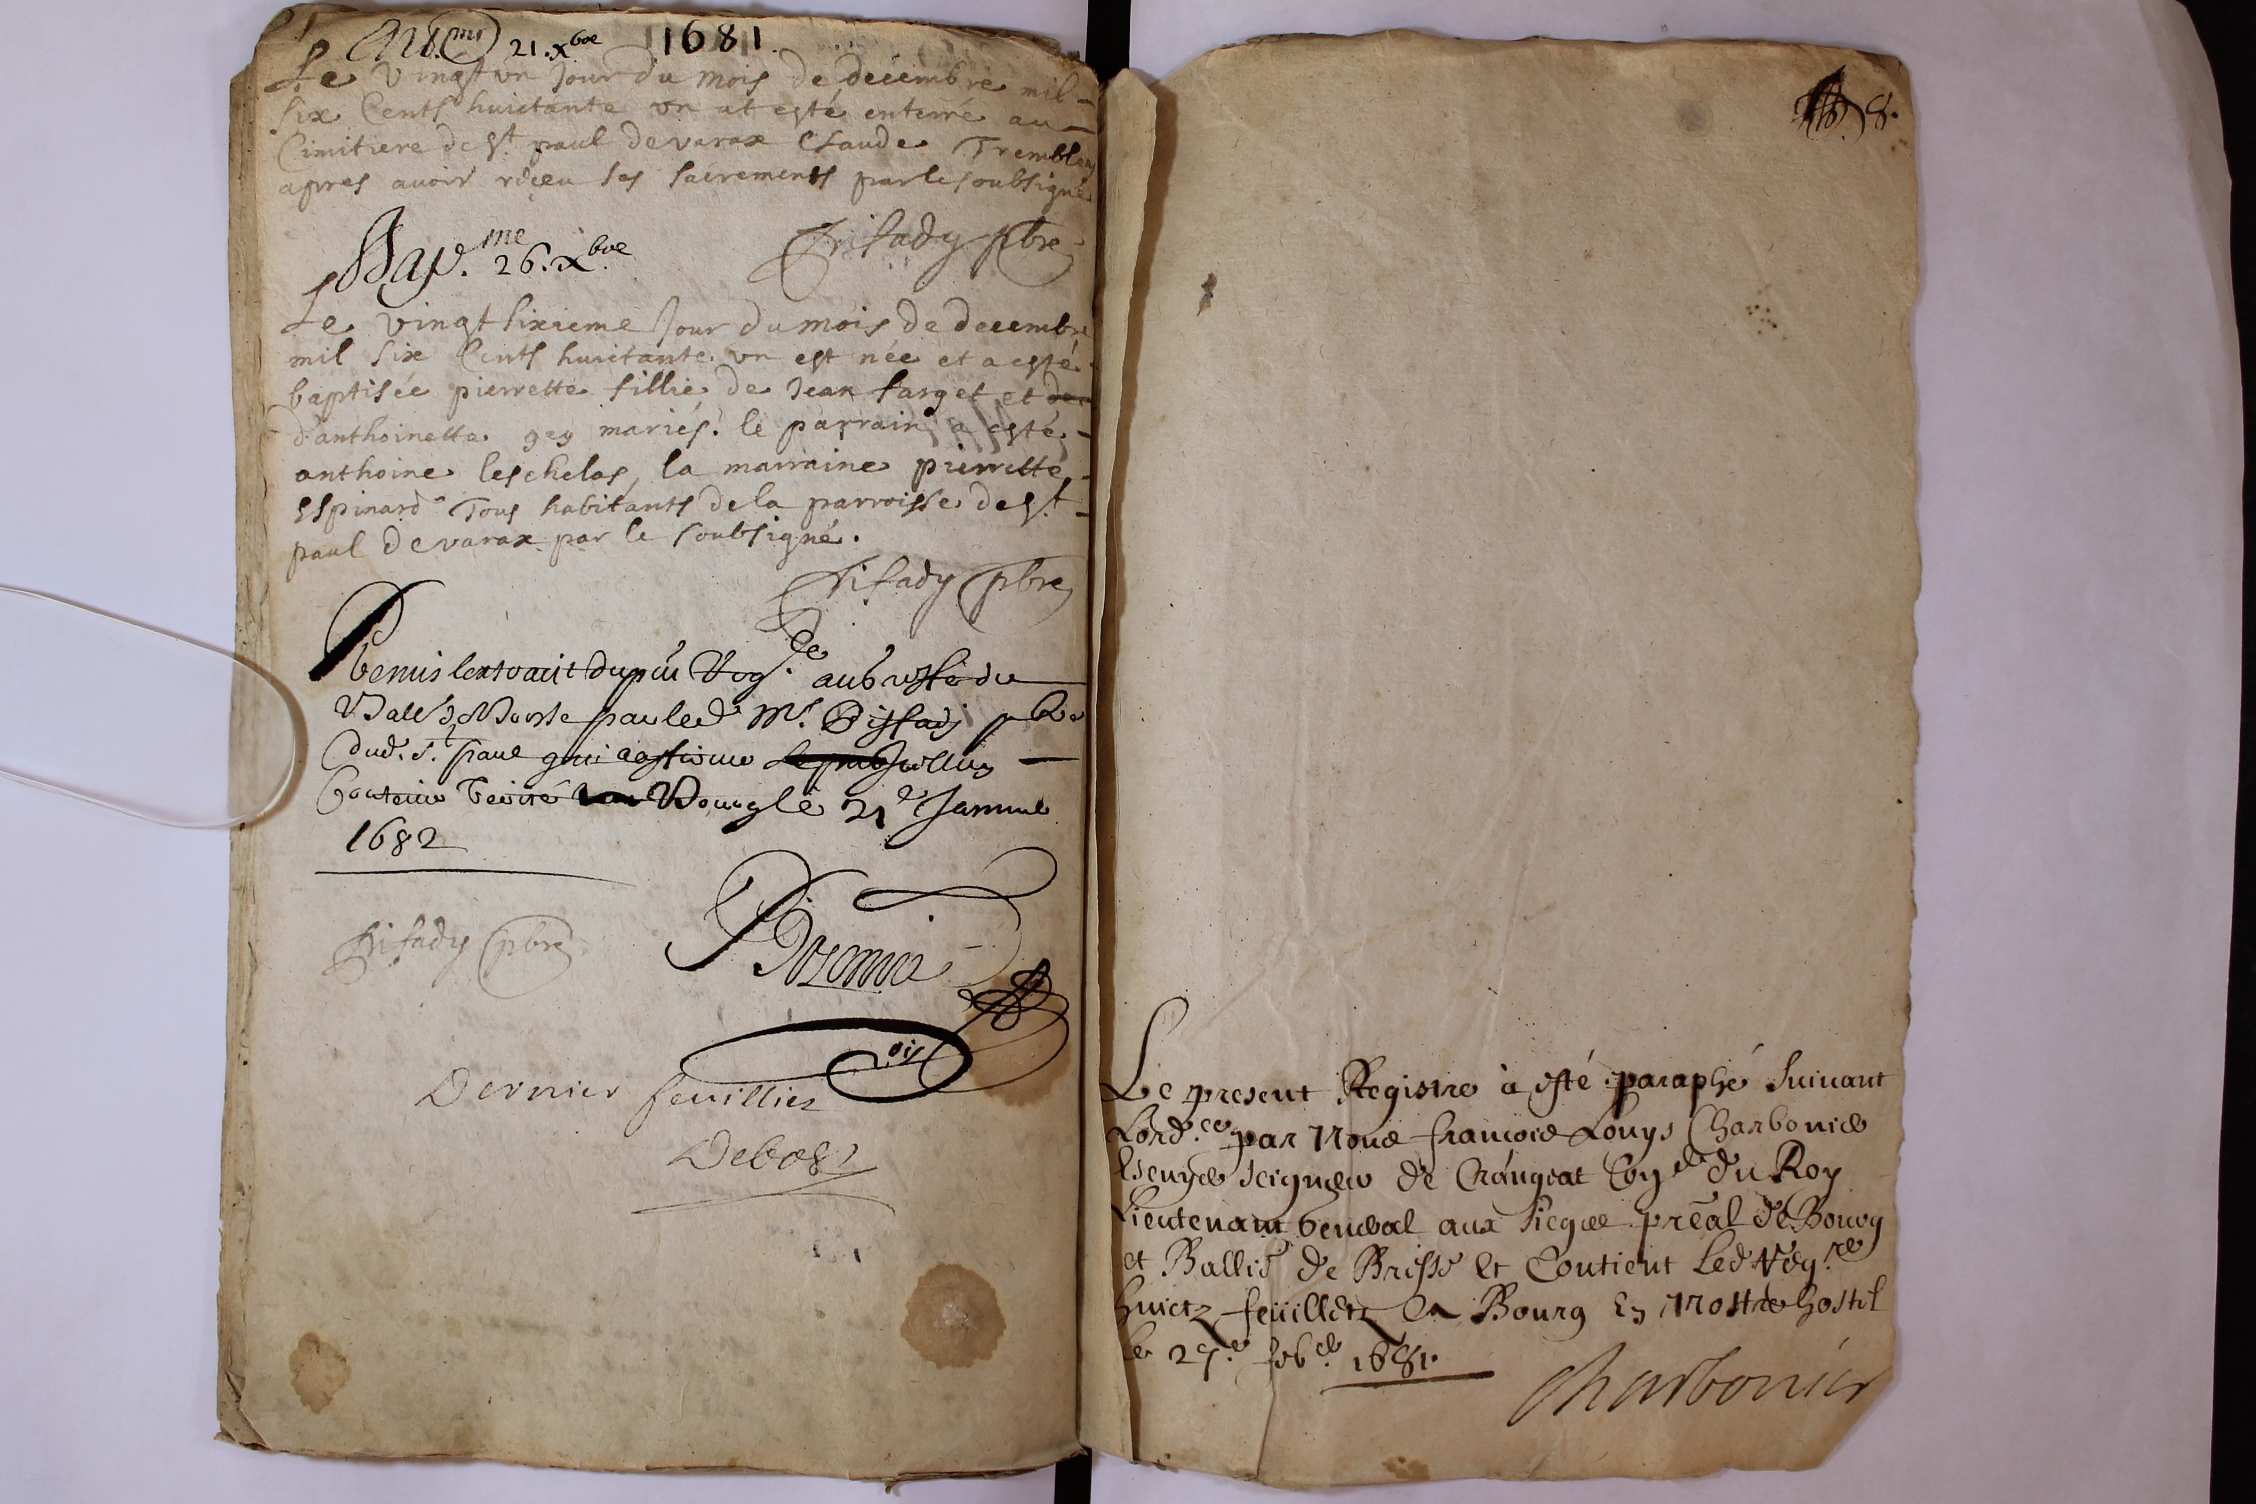 21. xbre 1681.
Le vingt un jour du mois de decembre mil
six Cents huictante un at esté enterré au
Cimitiere de St. paul de varax Claude Tremblay
apres avoir reçeu ses sacrements par le soubsigné
pbre
Bap.me 26. xbre
Le vingt sixieme Jour du mois de decembre
mil six Cents huictante un est née et a esté
baptisée pierrette fillie de Jean farget et
d'anthoinetta gey mariés. le parrain a esté
anthoine leschelas, la marraine pierrette
Espinard Tous habitants de la parroisse de St.
paul de varax par le soubsigné.
pbre
au greffe du
par led. Mr. pbre
dud. St. paul qui
Bourg le 21e Janvier
1682
pbre
Dernier feuillier
Debost
8.
Le present Registre à esté paraphé Suivant
Lord.ce par Nous francois Louys Charbonier
Escuyer seigneur de Crangeat Con.er du Roy
Lieutenant General aux sieges pre͞al de Bourg
et Ballie de Bresse et Contient Led Reg.re
huictz feüilletz A Bourg En Nostre hostel
le feb.er 1681.
Charbonier